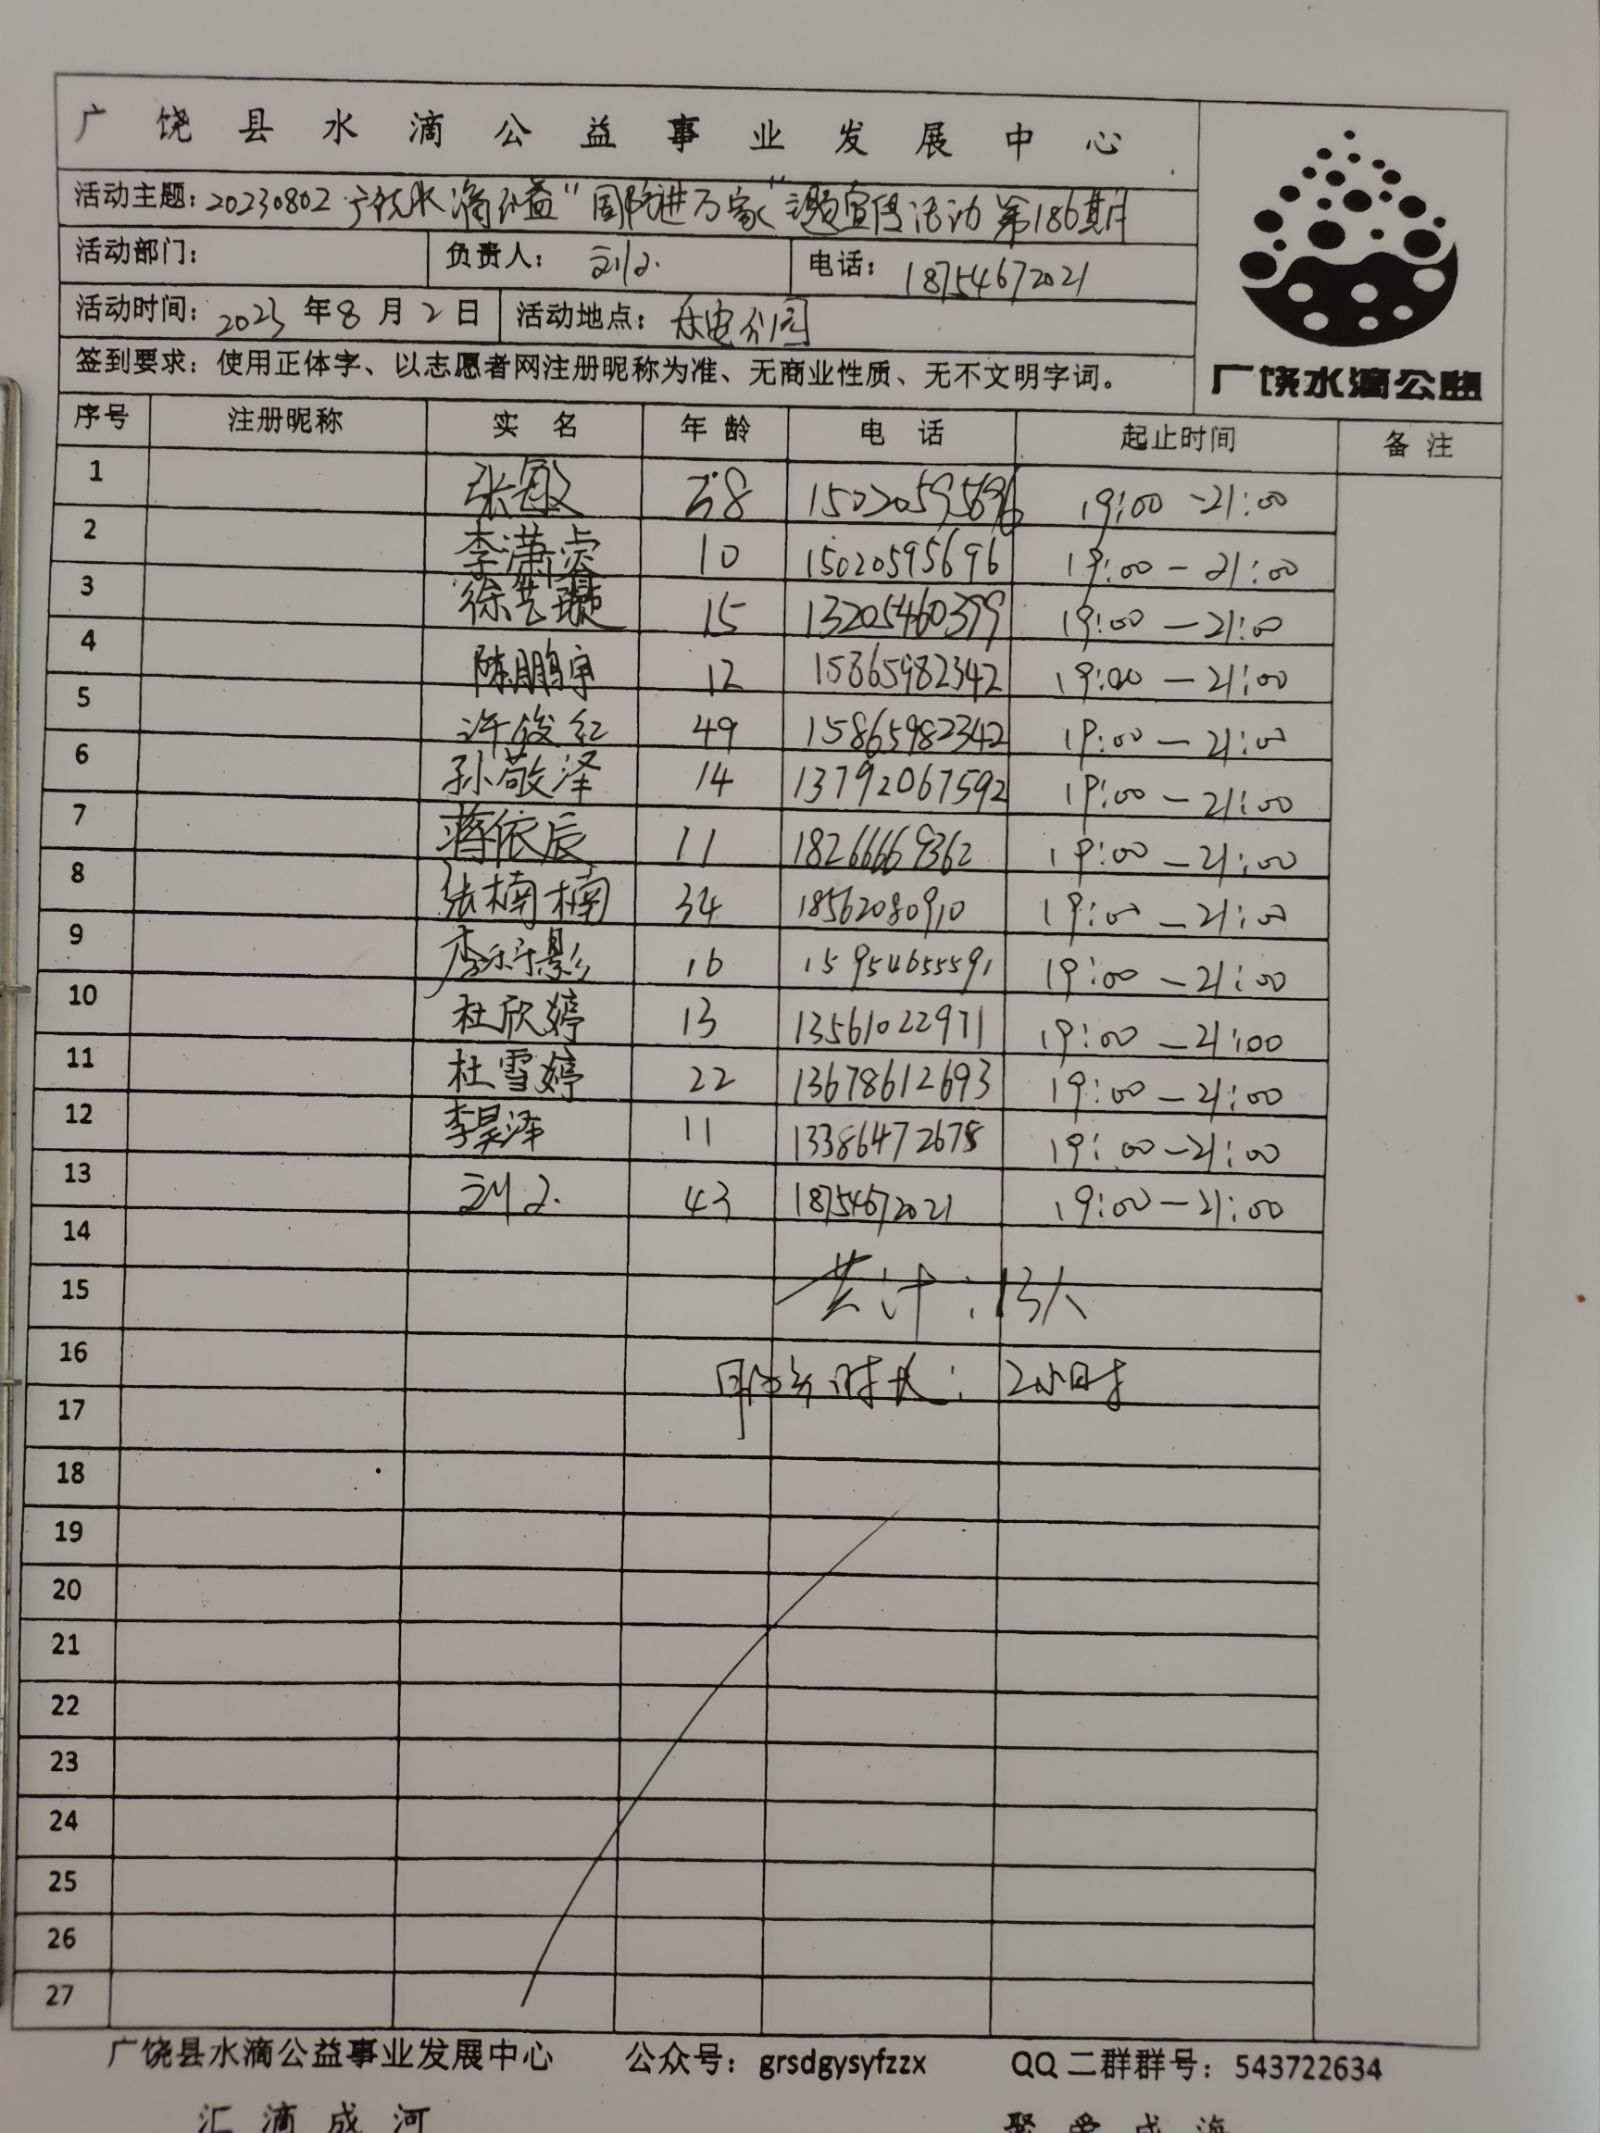 广饶县水滴公益事业发展中心
活动主题：20230802广饶水滴公益“国防进万家”主题宣传活动第186期
活动部门： 负责人： 电话：18754672021
活动时间：2023年8月2日 活动地点：乐安公园
签到要求：使用正体字、以志愿者网注册昵称为准、无商业性质、无不文明字词。
广饶水滴公益
序号 注册昵称 实名 年龄 电话 起止时间 备注
1 张敏 38 15020595696 19:00-21:00
2 李潇 10 15020595696 19:00-21:00
3 徐艺璇 15 13205460399 19:00-21:00
4 陈鹏宇 12 15865982342 19:00-21:00
5 许俊红 49 15865982342 19:00-21:00
6 孙敬泽 14 13792067592 19:00-21:00
7 蒋依辰 11 18266669362 19:00-21:00
8 张楠楠 34 18562080910 19:00-21:00
9 李 影 16 15954655591 19:00-21:00
10 杜欣婷 13 13561022971 19:00-21:00
11 杜雪婷 22 13678612693 19:00-21:00
12 李昊泽 11 13386472678 19:00-21:00
13 43 18754672021 19:00-21:00
14
15 共计：13人
16 服务时长：2小时
17
18
19
20
21
22
23
24
25
26
27
广饶县水滴公益事业发展中心 公众号：grsdgysyfzzx QQ二群群号：543722634
汇滴成河 聚爱成海